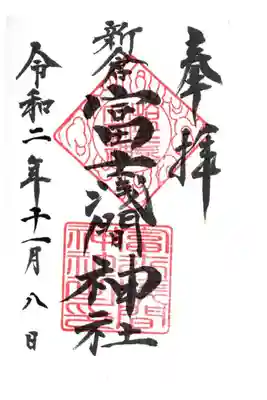 奉拝
新倉
富士浅間神社
令和二年十一月八日